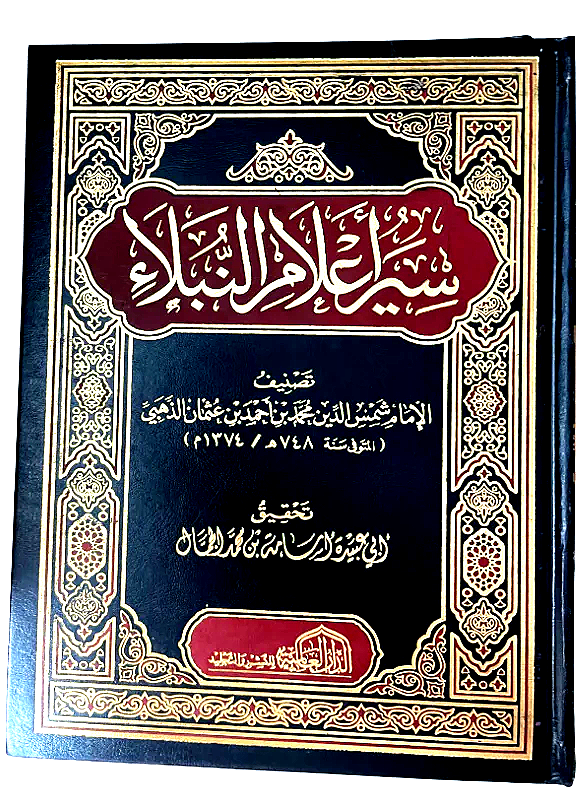 سِيَرُ أَعْلَامِ النُّبَلَاءِ
تَصْنِيفُ
الإمَامِ شَمْسِ الدِّين مُحَمَّد بْن أَحْمَد بْن عُثْمَان الذَّهَبِيّ
( المتوفى سنة ٧٤٨هـ / ١٣٧٤م )
تَحْقِيقُ
أبي عبيدة أسامة بن محمد الجمال
الدار العالمية للنشر والتجليد